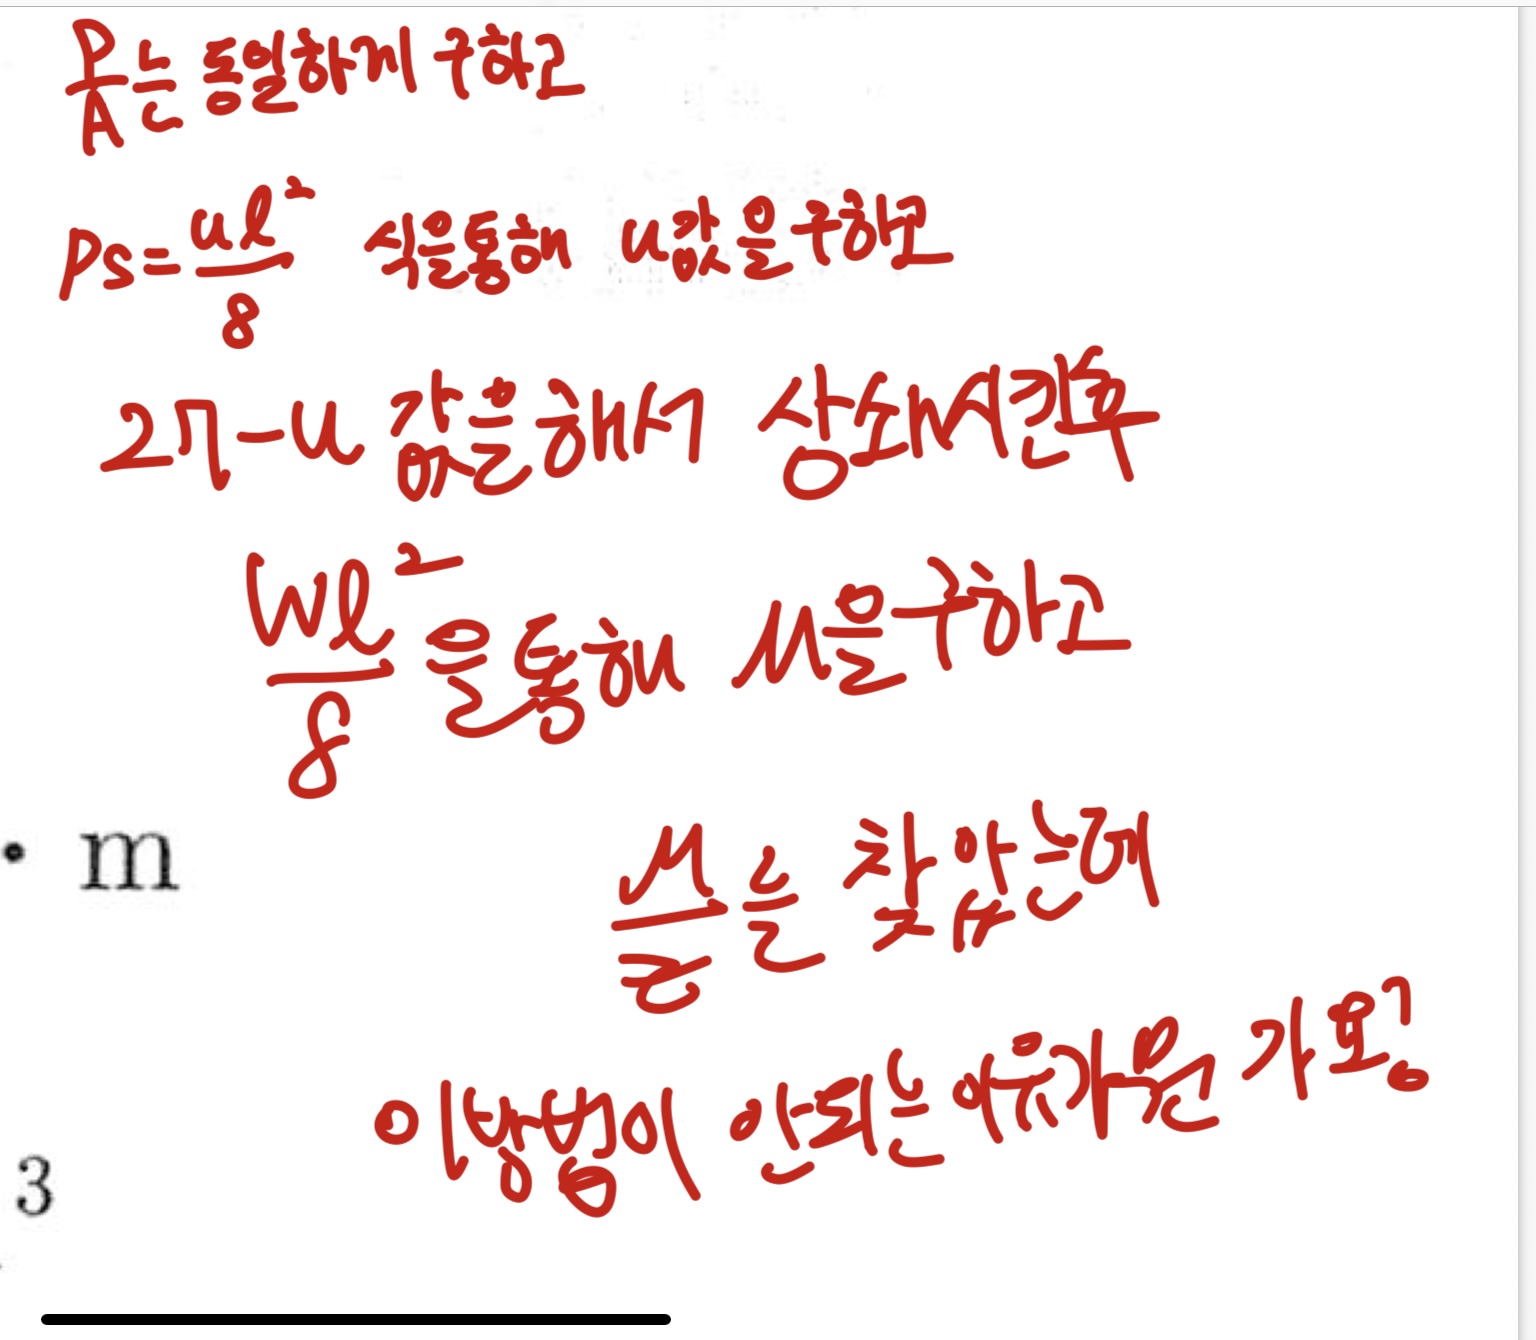 P/A는 동일하게 구하고
Ps = ul²/8 식을통해 u값을구하고
27-u 값을해서 상쇄시킨후
Wl²/8 을통해 M을구하고
· m
M/Z 을 찾았는데
이방법이 안되는이유가
3